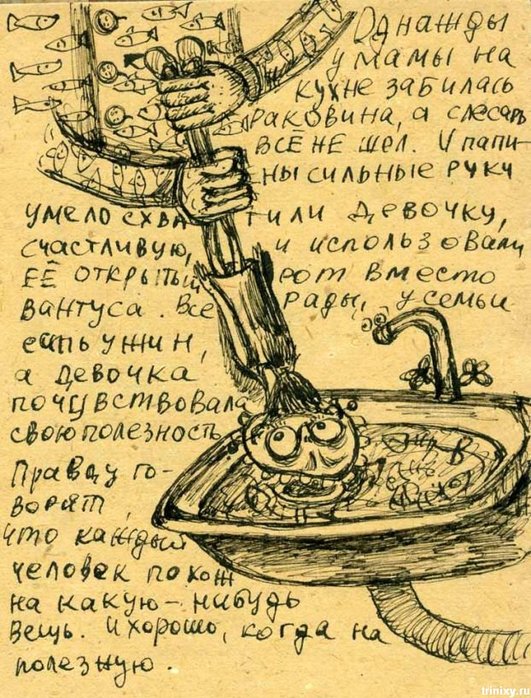 Однажды
у мамы на
кухне забилась
раковина, а слесарь
всё не шел. И папи-
ны сильные руки
умело схватили девочку,
счастливую, и использовали
её открытый рот вместо
вантуса. Все рады, у семьи
есть ужин,
а девочка
почувствовала
свою полезность
Правду го-
ворят,
что каждый
человек похож
на какую-нибудь
вещь. И хорошо, когда на
полезную.
trinixy.ru